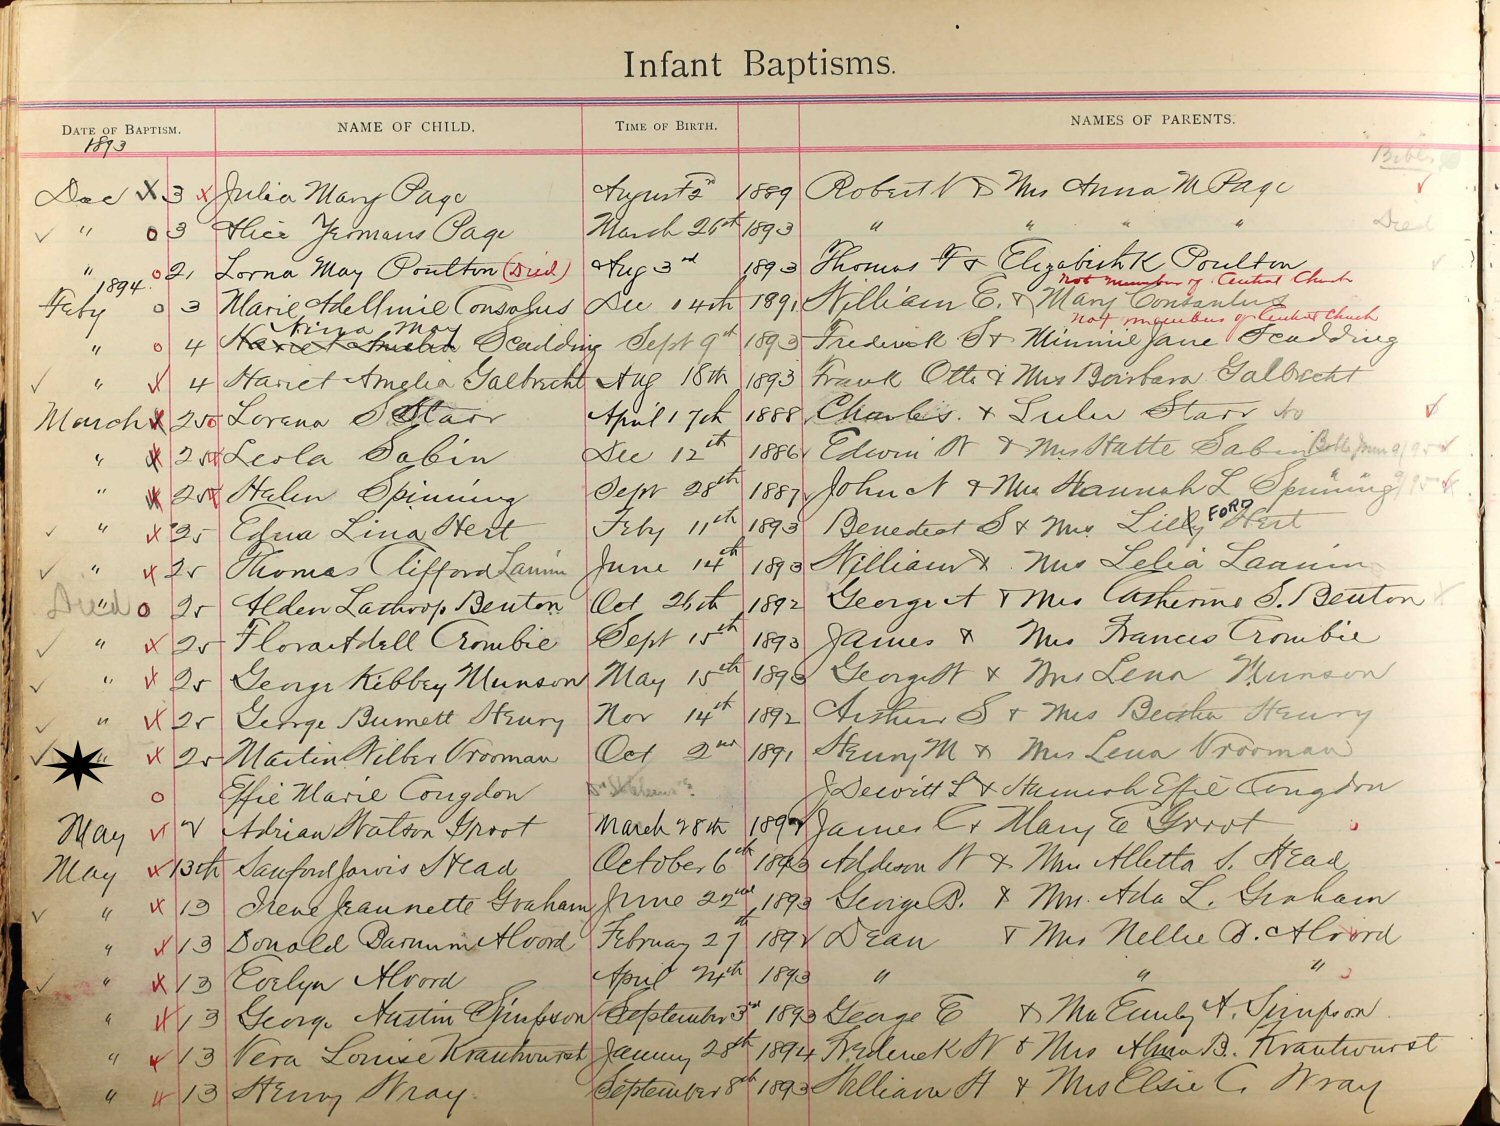 Infant Baptisms.
DATE OF BAPTISM. NAME OF CHILD. TIME OF BIRTH. NAMES OF PARENTS.
1893
Dec 3 Julia Mary Page August 2nd 1889 Robert V & Mrs Anna M Page
" 3 Alice Yeomans Page March 26th 1893 " " " " Died
" 21 Lorna May Poulton (Died) Aug 3rd 1893 Thomas F & Elizabeth K Poulton
1894 not member of Central Church
Feby 3 Marie Adellmie Consalus Dec 14th 1891 William E. & Mary Consalus
Nina May not members of Central Church
" 4 Hariet Amelia Scadding Sept 9th 1893 Frederick S & Minnie Jane Scadding
" 4 Hariet Amelia Galbrecht Aug 18th 1893 Frank Otto & Mrs Barbara Galbrecht
March 25 Lorena S Starr April 17th 1888 Charles. & Lulu Starr
" 25 Leola Sabin Dec 12th 1886 Edwin W & Mrs Hatte Sabin
" 25 Helen Spinning Sept 28th 1887 John N & Mrs Hannah L Spinning
FORD
" 25 Edna Lina Hert Feby 11th 1893 Benedict S & Mrs. Lilly Hert
" 25 Thomas Clifford Lannin June 14th 1893 William & Mrs Lelia Lannin
Died " 25 Alden Lathrop Benton Oct 26th 1892 George A & Mrs Catherine S. Benton
" 25 Flora Adell Crombie Sept 15th 1893 James & Mrs Frances Crombie
" 25 George Kibbey Munson May 15th 1893 George W & Mrs Lena Munson
" 25 George Burnett Henry Nov 14th 1892 Arthur S & Mrs Bertha Henry
" 25 Martin Wilber Vrooman Oct 2nd 1891 Henry M & Mrs Lena Vrooman
Effie Marie Congdon J Dewitt L & Hannah Effie Congdon
May Adrian Watson Groot March 28th James C & Mary E Groot
May 13th Sanford Jarvis Head October 6th 1893 Addison W & Mrs Alletta S. Head
" 13 Irene Jeannette Graham June 22nd 1893 George B. & Mrs. Ada L. Graham
" 13 Donald Barnum Alvord February 27th Dean & Mrs Nellie B. Alvord
" 13 Evelyn Alvord April 24th 1893 " " "
" 13 George Austin Simpson September 3rd 1893 George E & Mrs Emily A. Simpson
" 13 Vera Louise Krautwurst January 28th 1894 Frederick W & Mrs Alma B. Krautwurst
" 13 Henry Wray September 8th 1893 William H & Mrs Elsie C. Wray